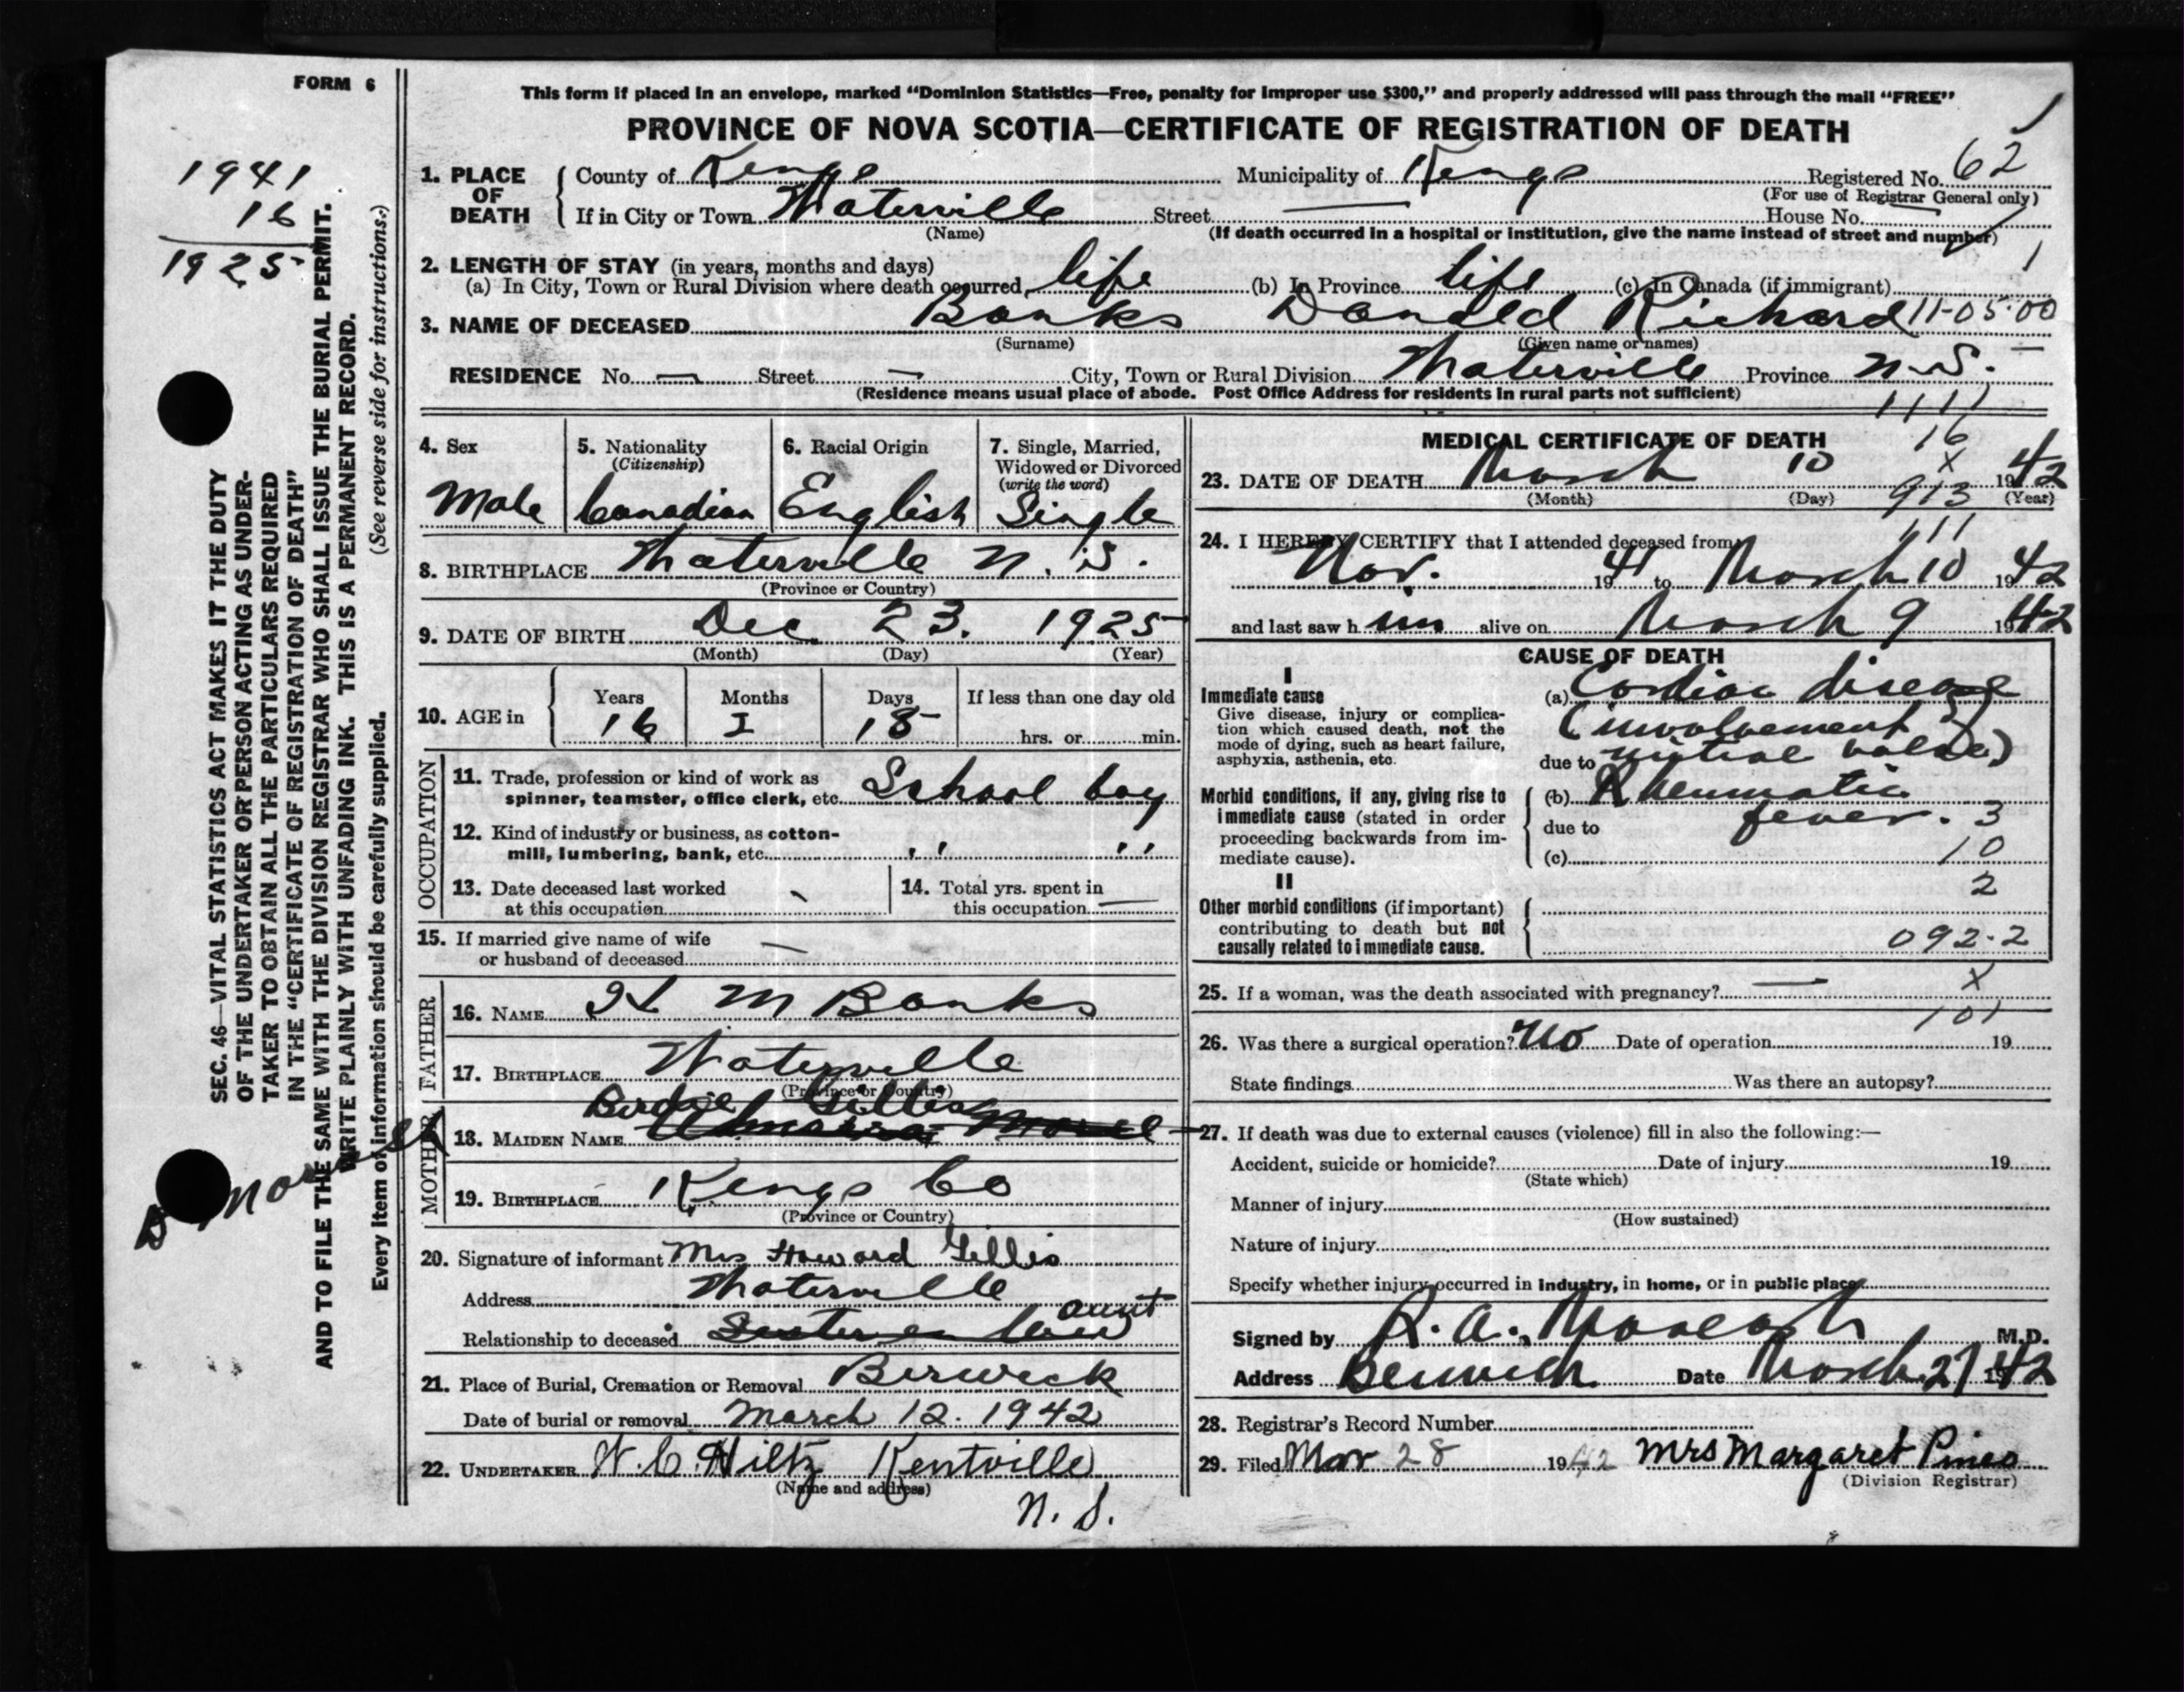 FORM 6
1941
16
1925
SEC. 46—VITAL STATISTICS ACT MAKES IT THE DUTY
OF THE UNDERTAKER OR PERSON ACTING AS UNDER-
TAKER TO OBTAIN ALL THE PARTICULARS REQUIRED
IN THE "CERTIFICATE OF REGISTRATION OF DEATH"
AND TO FILE THE SAME WITH THE DIVISION REGISTRAR WHO SHALL ISSUE THE BURIAL PERMIT.
WRITE PLAINLY WITH UNFADING INK. THIS IS A PERMANENT RECORD.
Every item of information should be carefully supplied. (See reverse side for instructions.)
This form if placed in an envelope, marked "Dominion Statistics—Free, penalty for improper use $300," and properly addressed will pass through the mail "FREE"
PROVINCE OF NOVA SCOTIA—CERTIFICATE OF REGISTRATION OF DEATH
1. PLACE OF DEATH County of Kings Municipality of Kings Registered No. 62
(For use of Registrar General only)
If in City or Town Waterville Street — House No. —
(Name) (If death occurred in a hospital or institution, give the name instead of street and number)
2. LENGTH OF STAY (in years, months and days)
(a) In City, Town or Rural Division where death occurred life (b) In Province life (c) In Canada (if immigrant)
3. NAME OF DECEASED Banks Donald Richard 11-05-00
(Surname) (Given name or names)
RESIDENCE No. — Street — City, Town or Rural Division Waterville Province N.S.
(Residence means usual place of abode. Post Office Address for residents in rural parts not sufficient)
4. Sex Male
5. Nationality (Citizenship) Canadian
6. Racial Origin English
7. Single, Married, Widowed or Divorced (write the word) Single
8. BIRTHPLACE Waterville N.S.
(Province or Country)
9. DATE OF BIRTH Dec 23. 1925
(Month) (Day) (Year)
10. AGE in Years 16 Months 2 Days 15 If less than one day old hrs. or min.
OCCUPATION
11. Trade, profession or kind of work as
spinner, teamster, office clerk, etc. School boy
12. Kind of industry or business, as cotton-
mill, lumbering, bank, etc. " "
13. Date deceased last worked
at this occupation
14. Total yrs. spent in
this occupation —
15. If married give name of wife
or husband of deceased —
FATHER
16. NAME H M Banks
17. BIRTHPLACE Waterville
(Province or Country)
MOTHER
Birdie Gillis
18. MAIDEN NAME
19. BIRTHPLACE Kings Co
(Province or Country)
20. Signature of informant Mrs Howard Gillis
Address Waterville
Relationship to deceased Sister in law aunt
21. Place of Burial, Cremation or Removal Berwick
Date of burial or removal March 12. 1942
22. UNDERTAKER W.C. Hiltz Kentville
(Name and address)
N.S.
1111
MEDICAL CERTIFICATE OF DEATH 16
X
23. DATE OF DEATH March 10 1942
(Month) (Day) (Year)
913
111
24. I HEREBY CERTIFY that I attended deceased from
Nov. 1941 to March 10 1942
and last saw him alive on March 9 1942
CAUSE OF DEATH
I
Immediate cause (a) Cardiac disease
Give disease, injury or complica-
tion which caused death, not the
mode of dying, such as heart failure,
asphyxia, asthenia, etc.
(involvement
due to mitral valve)
Morbid conditions, if any, giving rise to
immediate cause (stated in order
proceeding backwards from im-
mediate cause).
(b) Rheumatic
due to fever. 3
(c) 10
II 2
Other morbid conditions (if important)
contributing to death but not
causally related to immediate cause.
092.2
25. If a woman, was the death associated with pregnancy? — X
101
26. Was there a surgical operation? No Date of operation 19
State findings Was there an autopsy?
27. If death was due to external causes (violence) fill in also the following:—
Accident, suicide or homicide? Date of injury 19
(State which)
Manner of injury
(How sustained)
Nature of injury
Specify whether injury occurred in industry, in home, or in public place
Signed by R. A. M.D.
Address Berwick Date March 27 1942
28. Registrar's Record Number
29. Filed Mar 28 1942 Mrs Margaret Pineo
(Division Registrar)